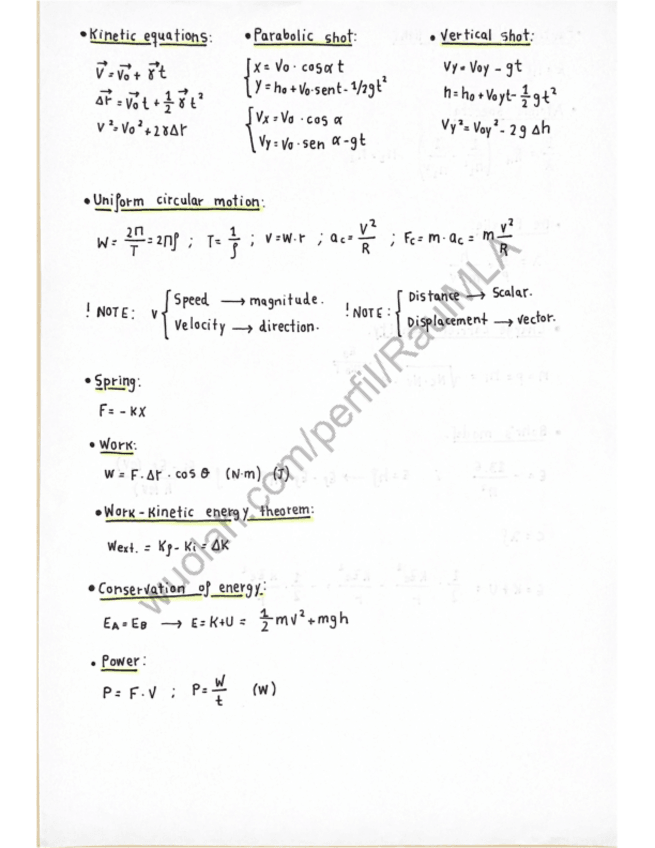 • Kinetic equations:
v⃗ = v⃗₀ + γ⃗ t
Δr⃗ = v⃗₀ t + 1/2 γ⃗ t²
v² = v₀² + 2γΔr
• Parabolic shot:
x = v₀ · cosα t
y = h₀ + v₀·sent - 1/2gt²
Vx = V₀ · cos α
Vy = V₀ · sen α - gt
• Vertical shot:
Vy = Voy - gt
h = h₀ + Voyt - 1/2 gt²
Vy² = Voy² - 2g Δh
• Uniform circular motion:
W = 2π/T = 2πf ; T = 1/f ; v = w·r ; ac = V²/R ; Fc = m · ac = m v²/R
! NOTE: v { Speed → magnitude.
Velocity → direction.
! NOTE: { Distance → Scalar.
Displacement → vector.
• Spring:
F = - KX
• Work:
W = F · Δr · cos θ (N·m) (J)
• Work - Kinetic energy theorem:
Wext. = Kf - Ki = ΔK
• Conservation of energy:
EA = EB → E = K+U = 1/2 mv² + mgh
• Power:
P = F · V ; P = W/t (W)
wuolah.com/perfil/RaulMLA